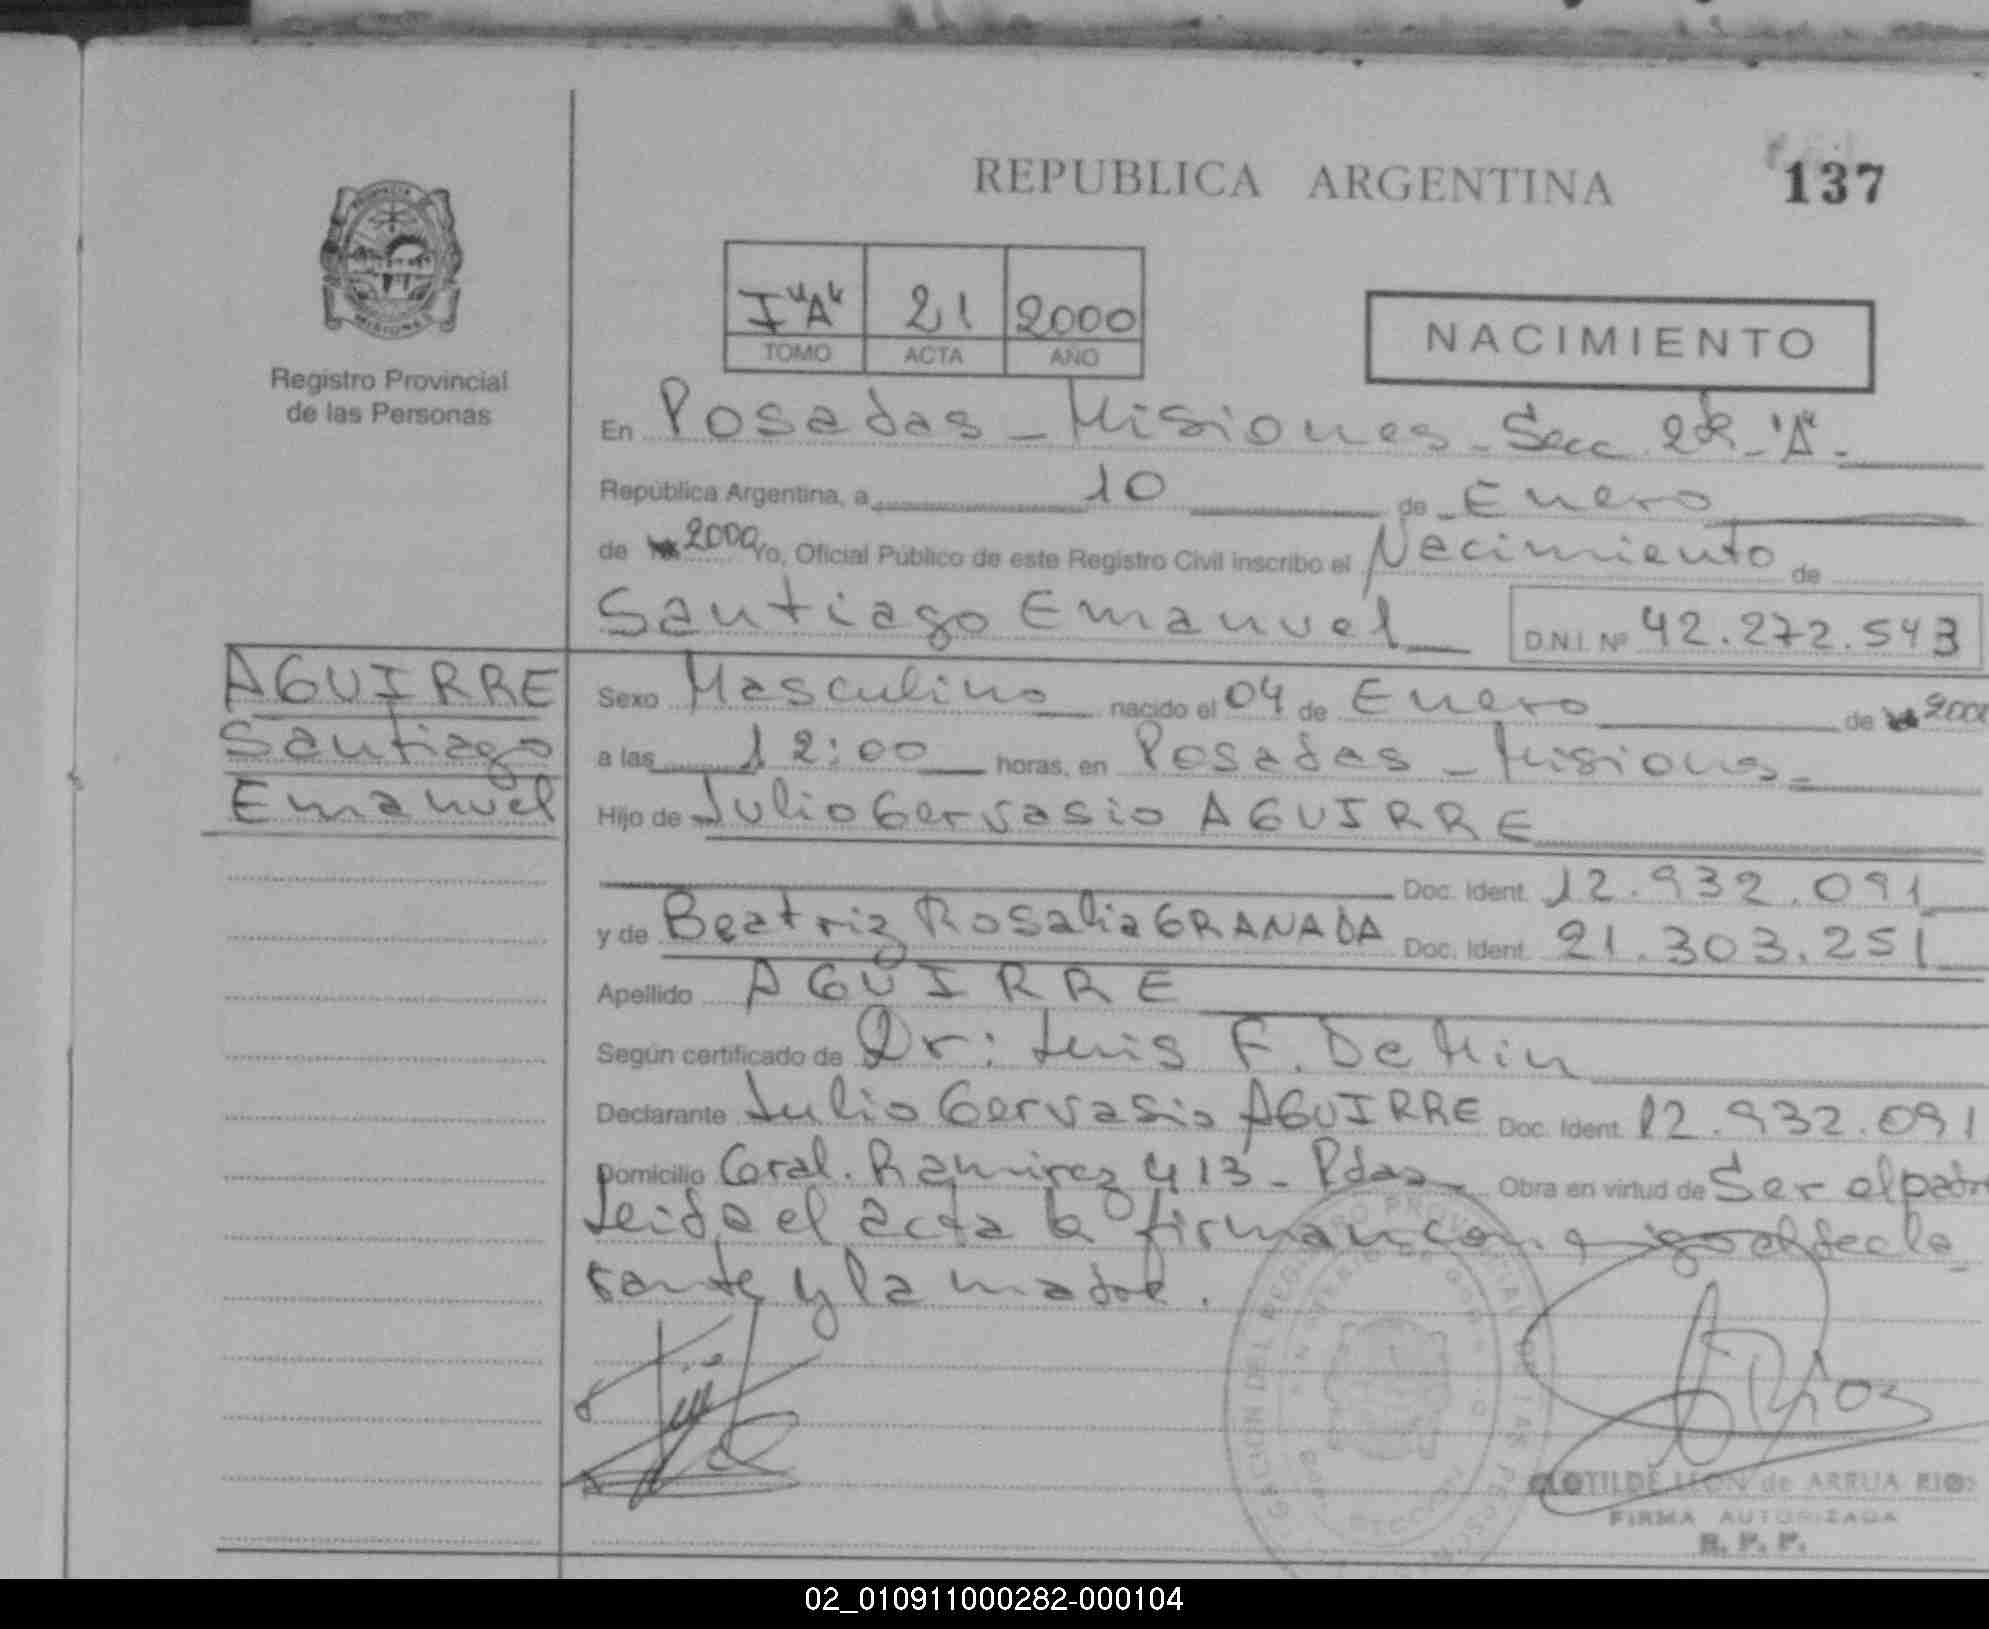 REPUBLICA ARGENTINA
137
I "A" 21 2000
TOMO ACTA AÑO
NACIMIENTO
PROVINCIA
MISIONES
Registro Provincial
de las Personas
En Posadas - Misiones - Secc. 2da - "A" -
República Argentina, a 10 de Enero
de 2000 Yo, Oficial Público de este Registro Civil inscribo el Nacimiento de
Santiago Emanuel D.N.I. Nº 42.272.543
AGUIRRE
Santiago
Emanuel
Sexo Masculino nacido el 04 de Enero de 2000
a las 12:00 horas, en Posadas - Misiones -
Hijo de Julio Gervasio AGUIRRE
Doc. Ident. 12.932.091
y de Beatriz Rosalia GRANADA Doc. Ident. 21.303.251
Apellido AGUIRRE
Según certificado de Dr: Luis F. De Min
Declarante Julio Gervasio AGUIRRE Doc. Ident. 12.932.091
Domicilio Gral. Ramirez 413 - Pdas - Obra en virtud de Ser el padre
Leida el acta la firman conmigo el decla
rante y la madre.
CLOTILDE LEON de ARRUA RIOS
FIRMA AUTORIZADA
R. P. P.
02_010911000282-000104